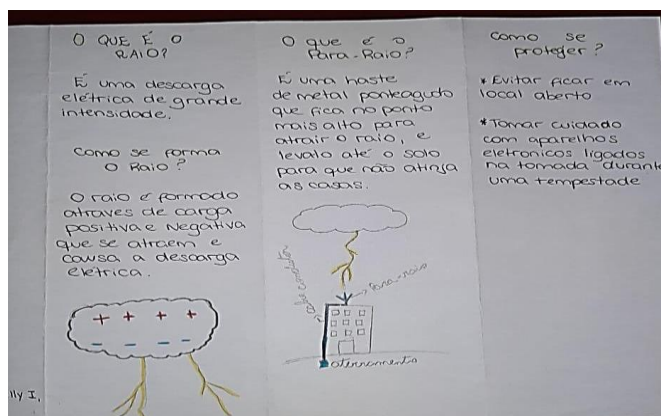 O QUE É O
RAIO?
É uma descarga
elétrica de grande
intensidade.
Como se forma
o Raio?
O raio é formado
atraves de carga
positiva e Negativa
que se atraem e
causa a descarga
eletrica.
+ + + +
- - - -
lly I,
O que é o
Para-Raio?
É uma haste
de metal ponteagudo
que fica no ponto
mais alto para
atrair o raio, e
levalo até o solo
para que não atinja
as casas.
cabo condutor
Para-raio
aterramento
Como se
proteger?
* Evitar ficar em
local aberto
* Tomar cuidado
com aparelhos
eletronicos ligados
na tomada durante
uma tempestade